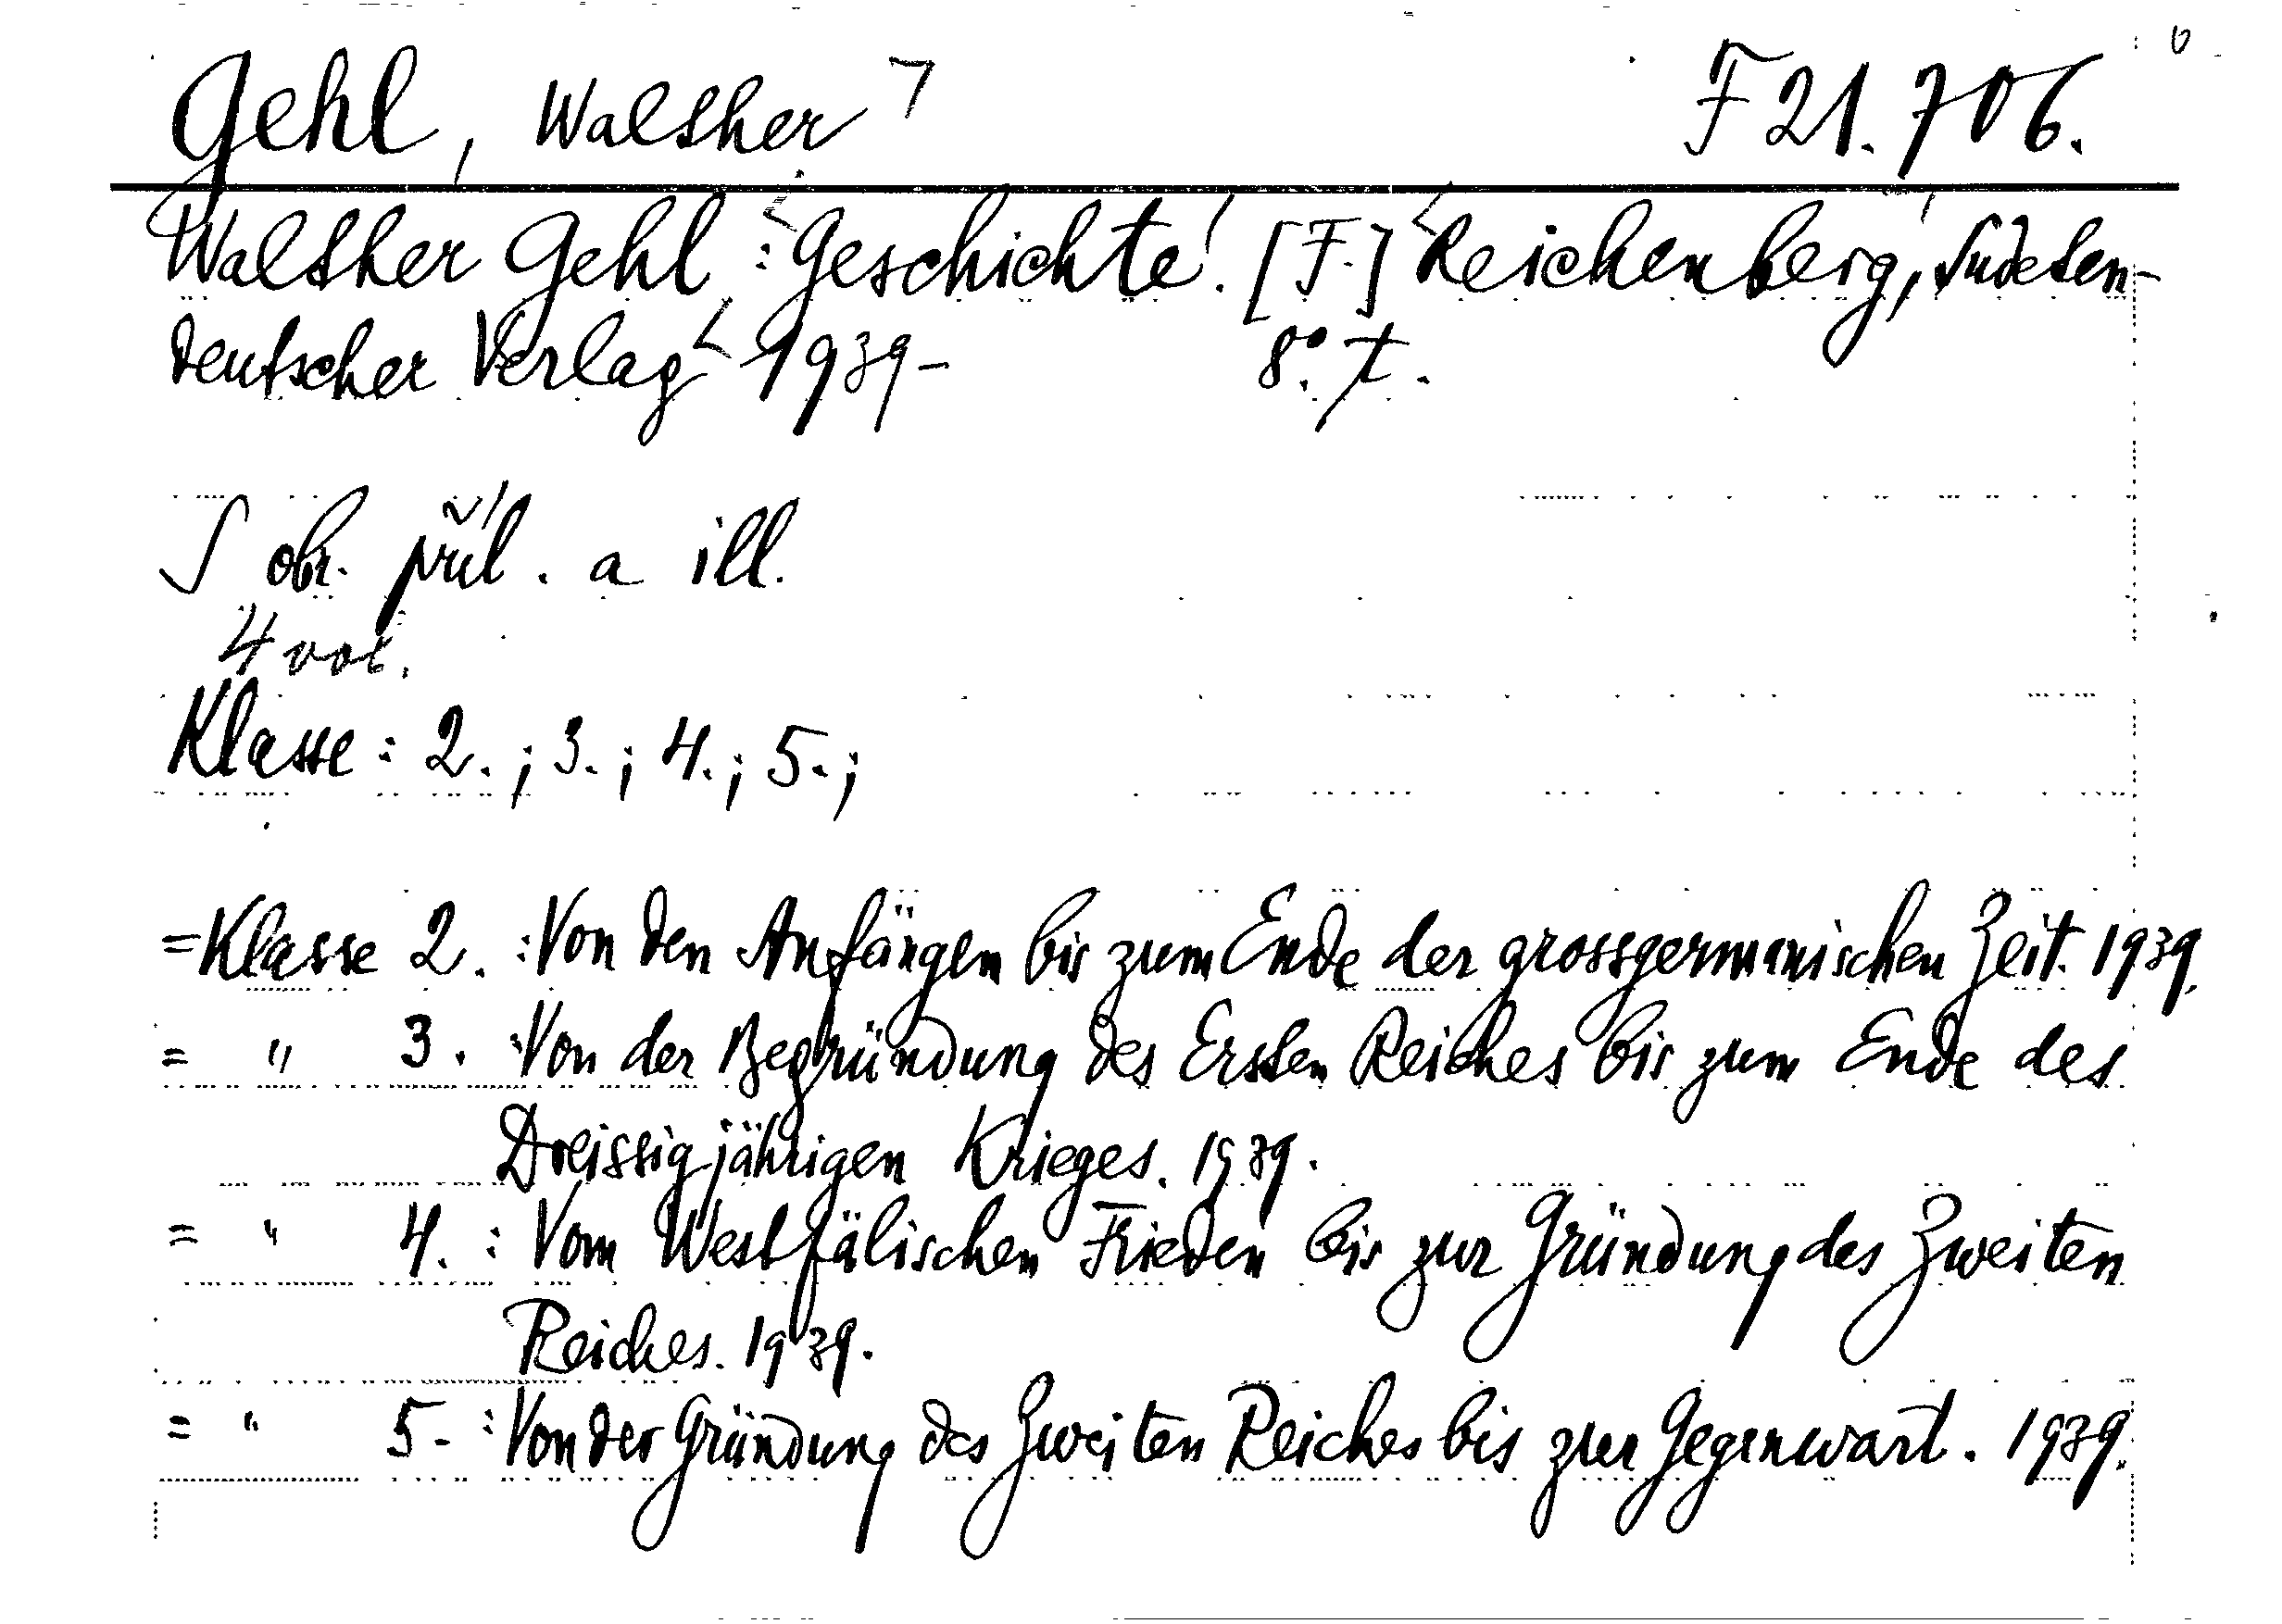 Gehl, Walther
F 21.706.
Walther Gehl : Geschichte. [F.] Reichenberg, Sudeten-
deutscher Verlag 1939- 8°. t.
S obr. příl. a ill.
4 vol.
Klasse : 2. ; 3. ; 4. ; 5. ;
=Klasse 2. : Von den Anfängen bis zum Ende der grossgermanischen Zeit. 1939.
= " 3. : Von der Begründung des Ersten Reiches bis zum Ende des
Dreissigjährigen Krieges. 1939.
= " 4. : Vom Westfälischen Frieden bis zur Gründung des Zweiten
Reiches. 1939.
= " 5. : Von der Gründung des Zweiten Reiches bis zur Gegenwart. 1939.